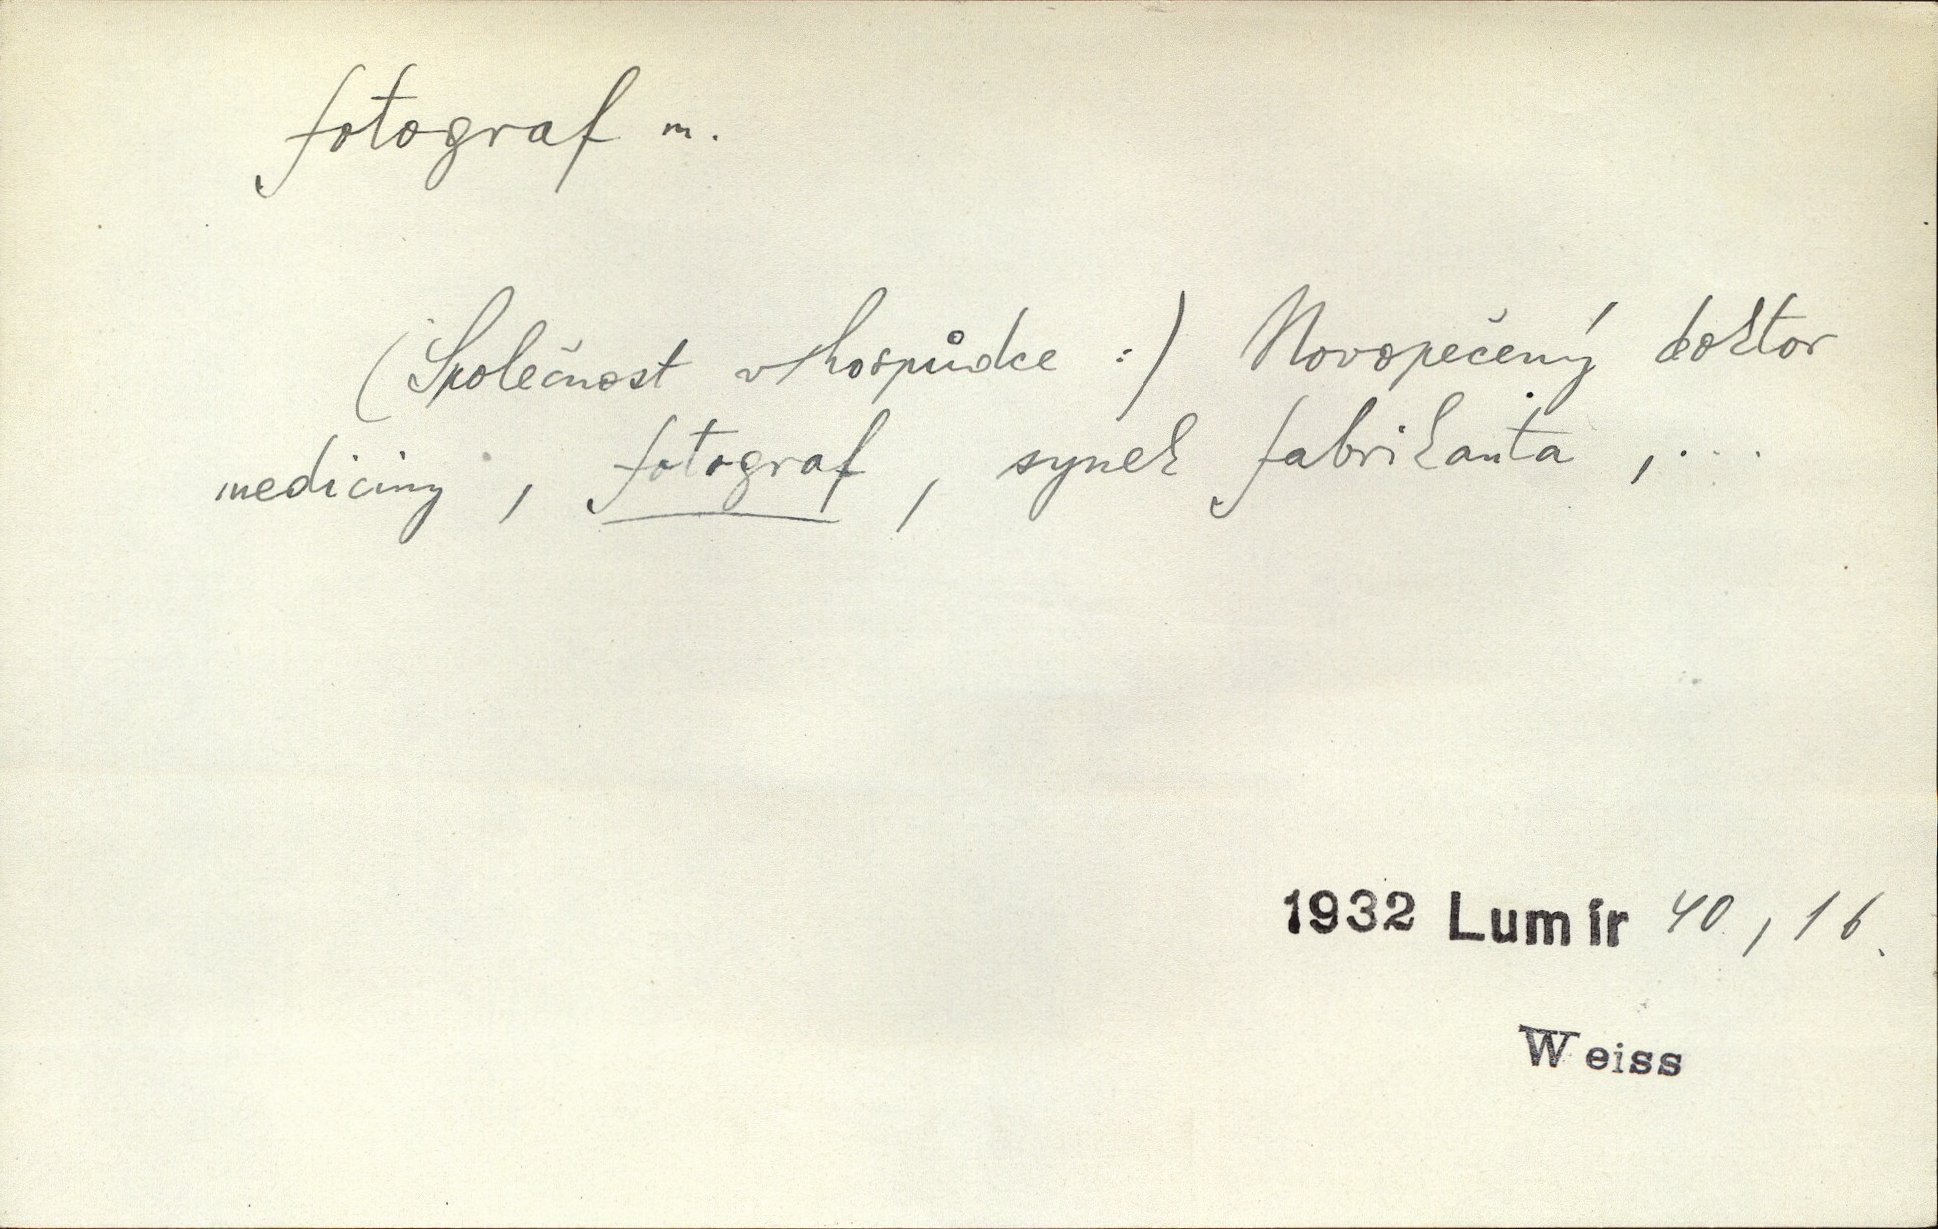 fotograf m.
(Společnost v hospůdce :) Novopečený doktor
mediciny, fotograf, synek fabrikanta, ...
1932 Lumír 40, 16.
Weiss